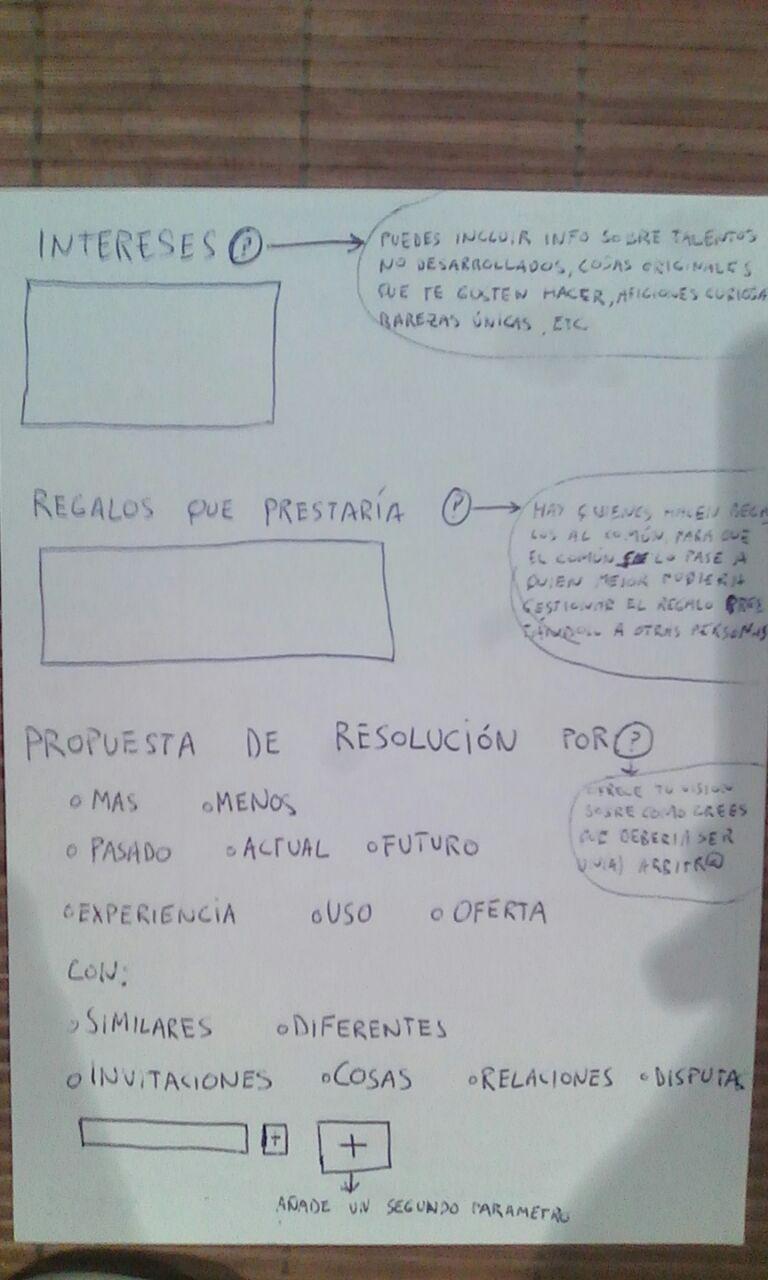 INTERESES ?
PUEDES INCLUIR INFO SOBRE TALENTOS
NO DESARROLLADOS, COSAS ORIGINALES
QUE TE GUSTEN HACER, AFICIONES CURIOSA
RAREZAS ÚNICAS, ETC
REGALOS QUE PRESTARÍA ?
HAY QUIENES HACEN REGA
LOS AL COMÚN, PARA QUE
EL COMÚN LO PASE A
QUIEN MEJOR PUDIERA
GESTIONAR EL REGALO PRES
TÁNDOLO A OTRAS PERSONAS
PROPUESTA DE RESOLUCIÓN POR ?
OFRECE TU VISION
SOBRE COMO CREES
QUE DEBERIA SER
UN(A) ARBITR@
MAS MENOS
PASADO ACTUAL FUTURO
EXPERIENCIA USO OFERTA
CON:
SIMILARES DIFERENTES
INVITACIONES COSAS RELACIONES DISPUTAS
+ +
AÑADE UN SEGUNDO PARAMETRO